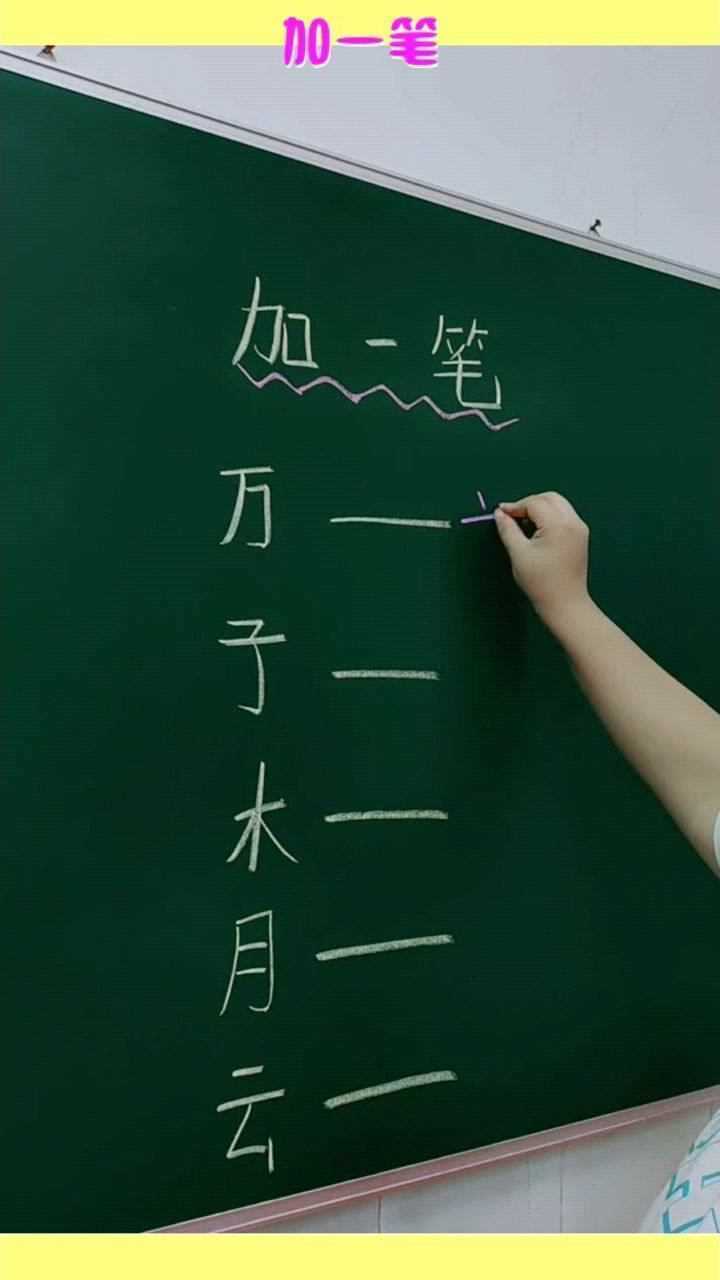 加一笔
加一笔
万 —— 亠
子 ——
木 ——
月 ——
云 ——